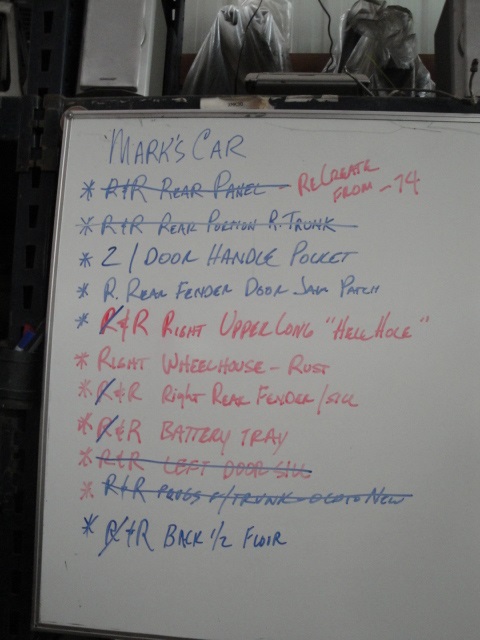 MARK'S CAR
* R&R REAR PANEL - RECREATE FROM -74
* R&R REAR PORTION R. TRUNK
* 2 / DOOR HANDLE POCKET
* R. REAR FENDER DOOR JAM PATCH
* R&R RIGHT UPPER LONG "HELL HOLE"
* RIGHT WHEELHOUSE - RUST
* R&R RIGHT REAR FENDER/SILL
* R&R BATTERY TRAY
* R&R LEFT DOOR SILL
* R&R F/TRUNK - OLD TO NEW
* R&R BACK 1/2 FLOOR